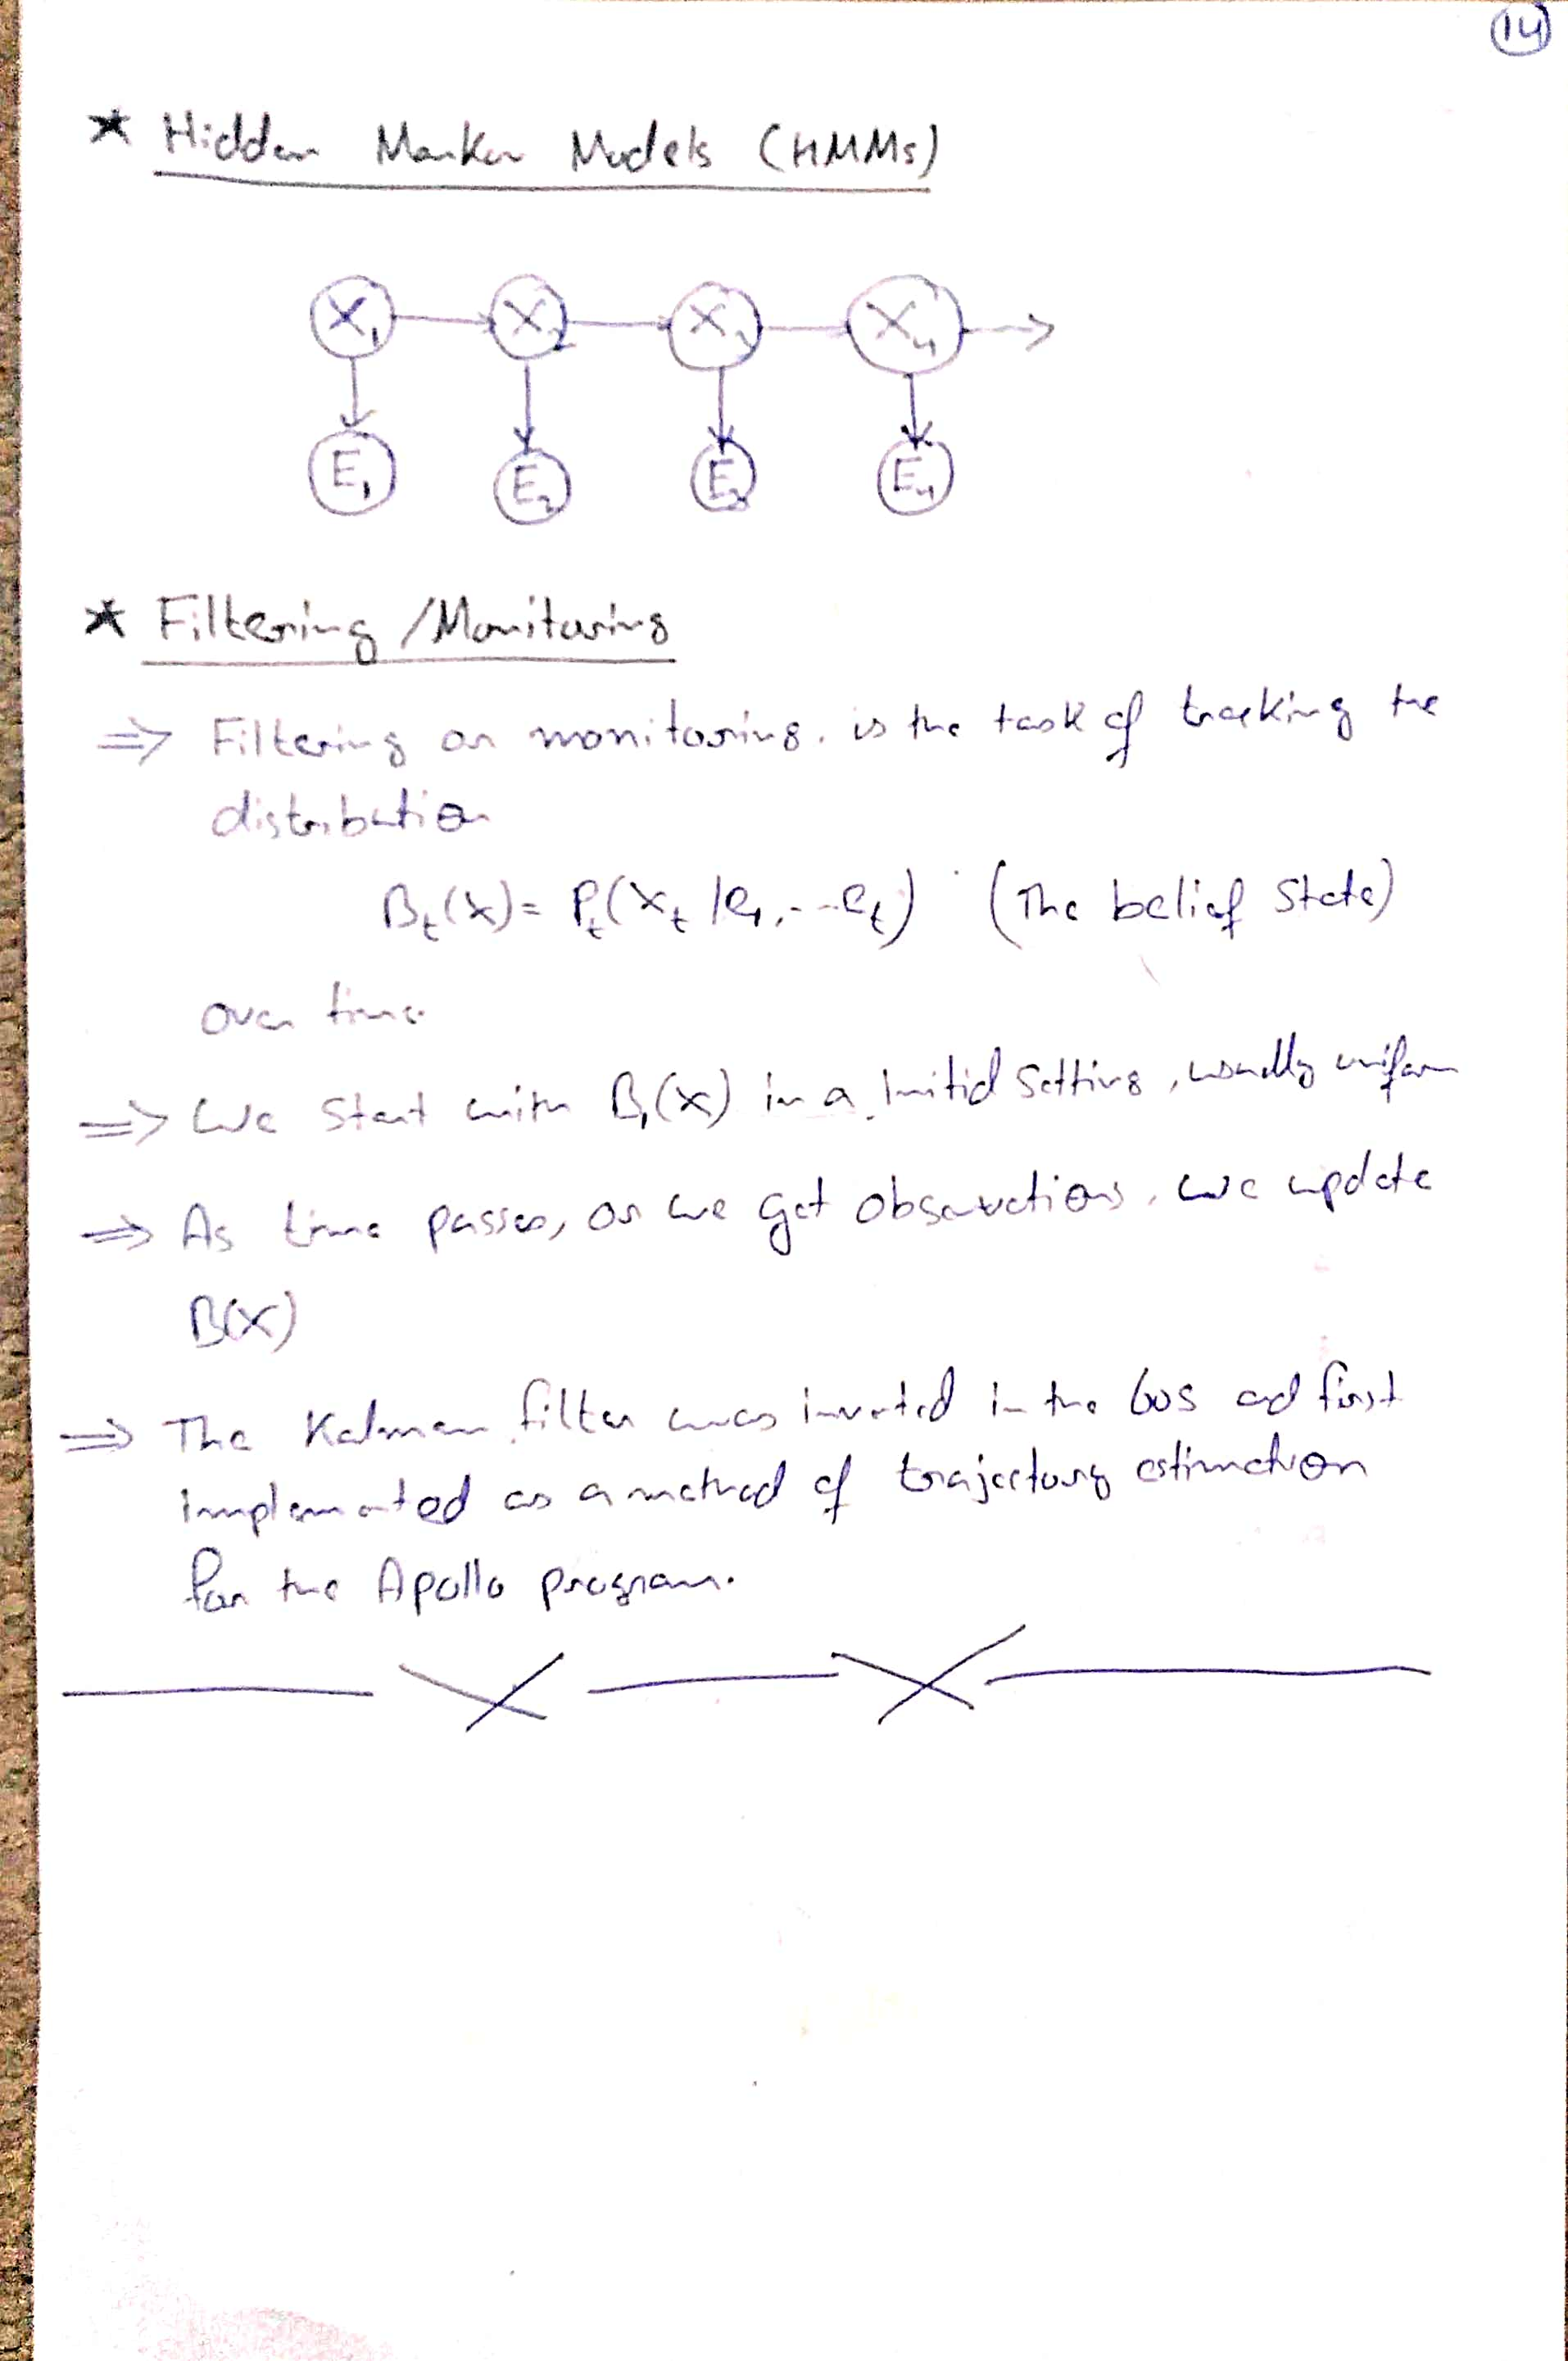 14
* Hidden Markov Models (HMMs)
X₁ X₂ X₃ X₄
E₁ E₂ E₃ E₄
* Filtering/Monitoring
⇒ Filtering or monitoring. is the task of tracking the
distribution
Bₜ(X) = Pₜ(Xₜ/e₁,---eₜ) (The belief State)
over time
⇒ We Start with B₁(X) in a Initial Setting, usually uniform
⇒ As time passes, or we get observations, we update
B(X)
⇒ The Kalman filter was invented in the 60s and first
implemented as a method of trajectory estimation
for the Apollo program.